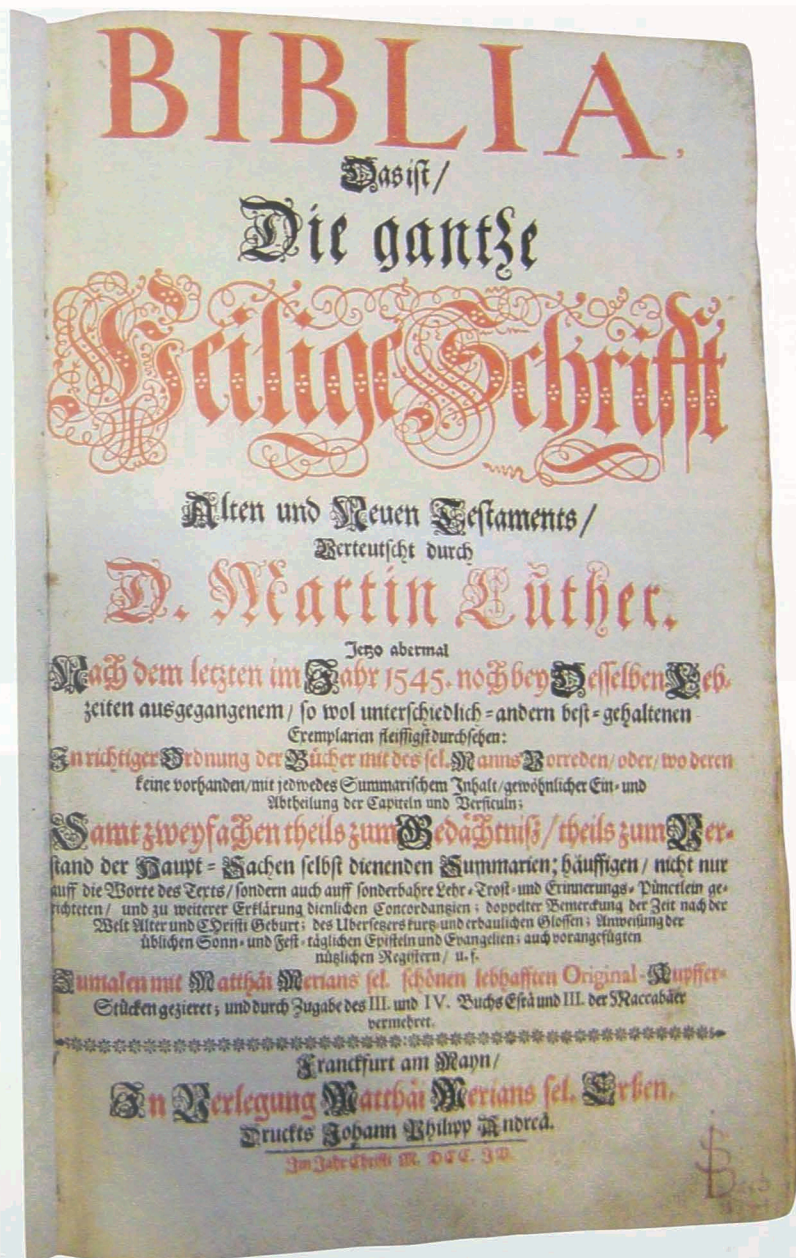 BIBLIA,
Das ist/
Die gantze
Heilige Schrifft
Alten und Neuen Testaments/
Verteutscht durch
D. Martin Luther.
Jetzo abermal
Nach dem letzten im Jahr 1545. noch bey Desselben Leb-
zeiten ausgegangenem/ so wol unterschiedlich-andern best-gehaltenen
Exemplarien fleissigst durchsehen:
In richtiger Ordnung der Bücher mit des sel. Manns Vorreden/ oder/ wo deren
keine vorhanden/ mit jedwedes Summarischem Inhalt/ gewöhnlicher Ein- und
Abtheilung der Capiteln und Versiculn;
Samt zweyfachen theils zum Gedächtniß/ theils zum Ver-
stand der Haupt-Sachen selbst dienenden Summarien; häuffigen/ nicht nur
auff die Worte des Texts/ sondern auch auff sonderbahre Lehr-Trost- und Erinnerungs-Pünctlein ge-
richteten/ und zu weiterer Erklärung dienlichen Concordantzien; doppelter Bemerckung der Zeit nach der
Welt Alter und CHristi Geburt; des Ubersetzers kurtz- und erbaulichen Glossen; Anweisung der
üblichen Sonn- und Fest-täglichen Episteln und Evangelien; auch vorangefügten
nützlichen Registern/ u. s.
Zumalen mit Matthäi Merians sel. schönen lebhafften Original-Kupffer-
Stücken gezieret; und durch Zugabe des III. und IV. Buchs Esrä und III. der Maccabäer
vermehret.
Franckfurt am Mayn/
In Verlegung Matthäi Merians sel. Erben,
Druckts Johann Philipp Andreä.
Im Jahr Christi M. DCC. IV.